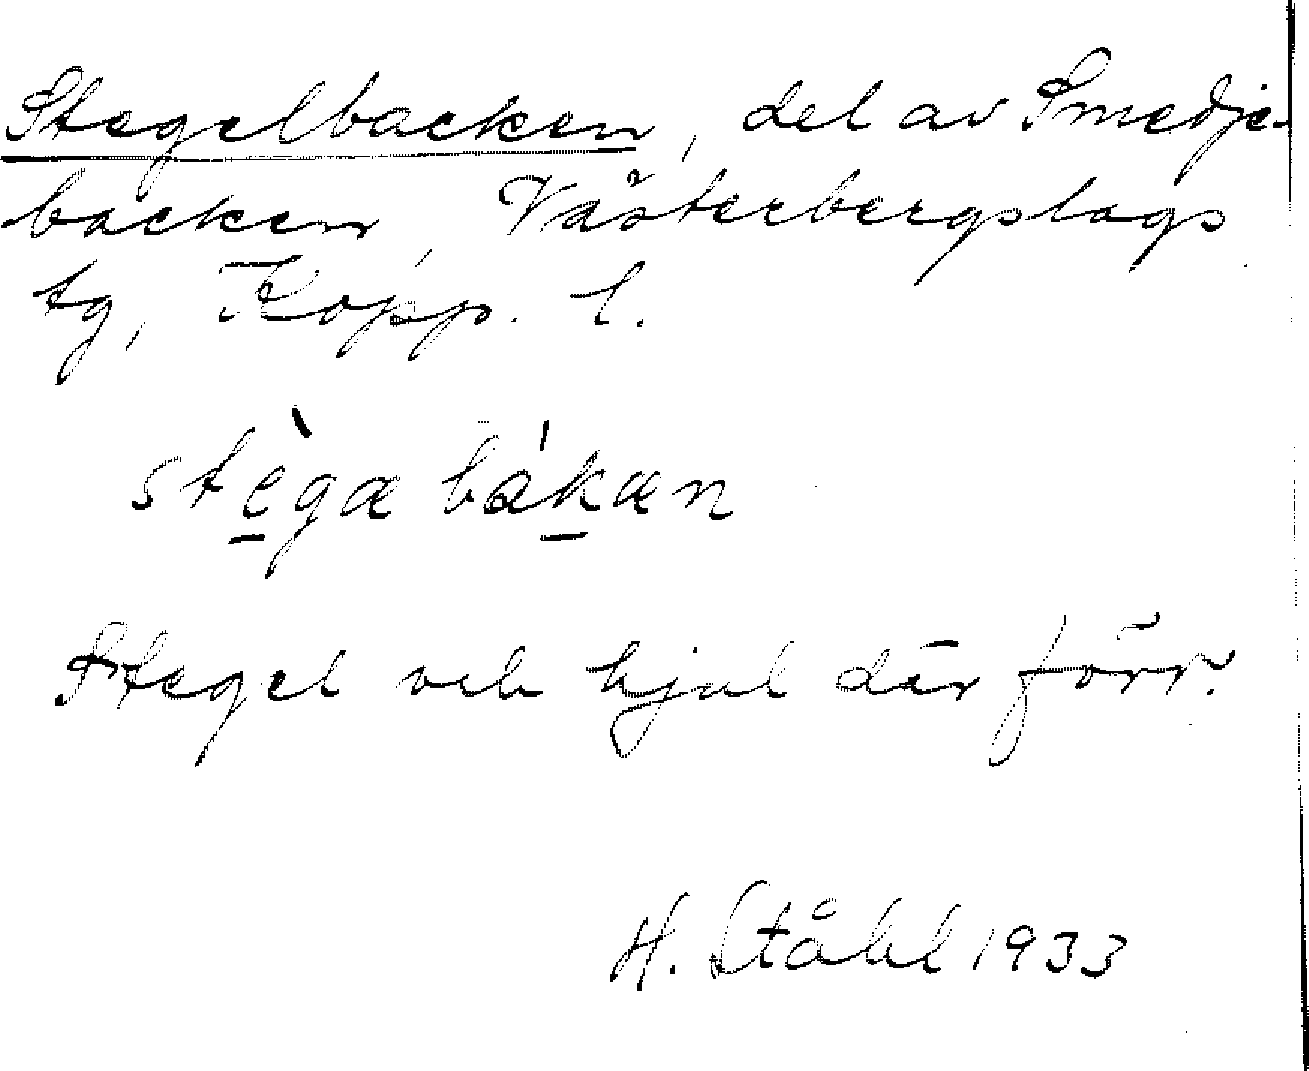 Stegelbacken, del av Smedje-
backen, Västerbergslags
tg, Kopp. l.
stè̱gæ báḵæn
Stegel och hjul där förr.
H. Ståhl 1933